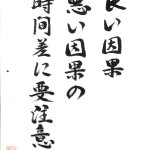 良い因果
悪い因果の
時間差に要注意